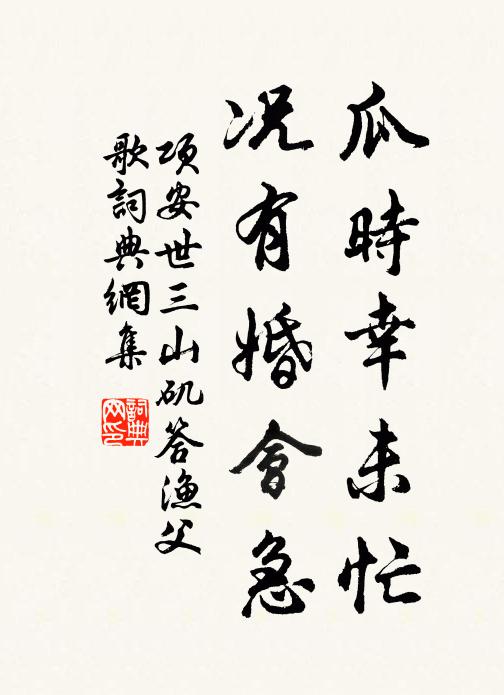 瓜時幸未忙
況有婚會急
項安世三山矶答漁父
歌詞典網集
詞典網印